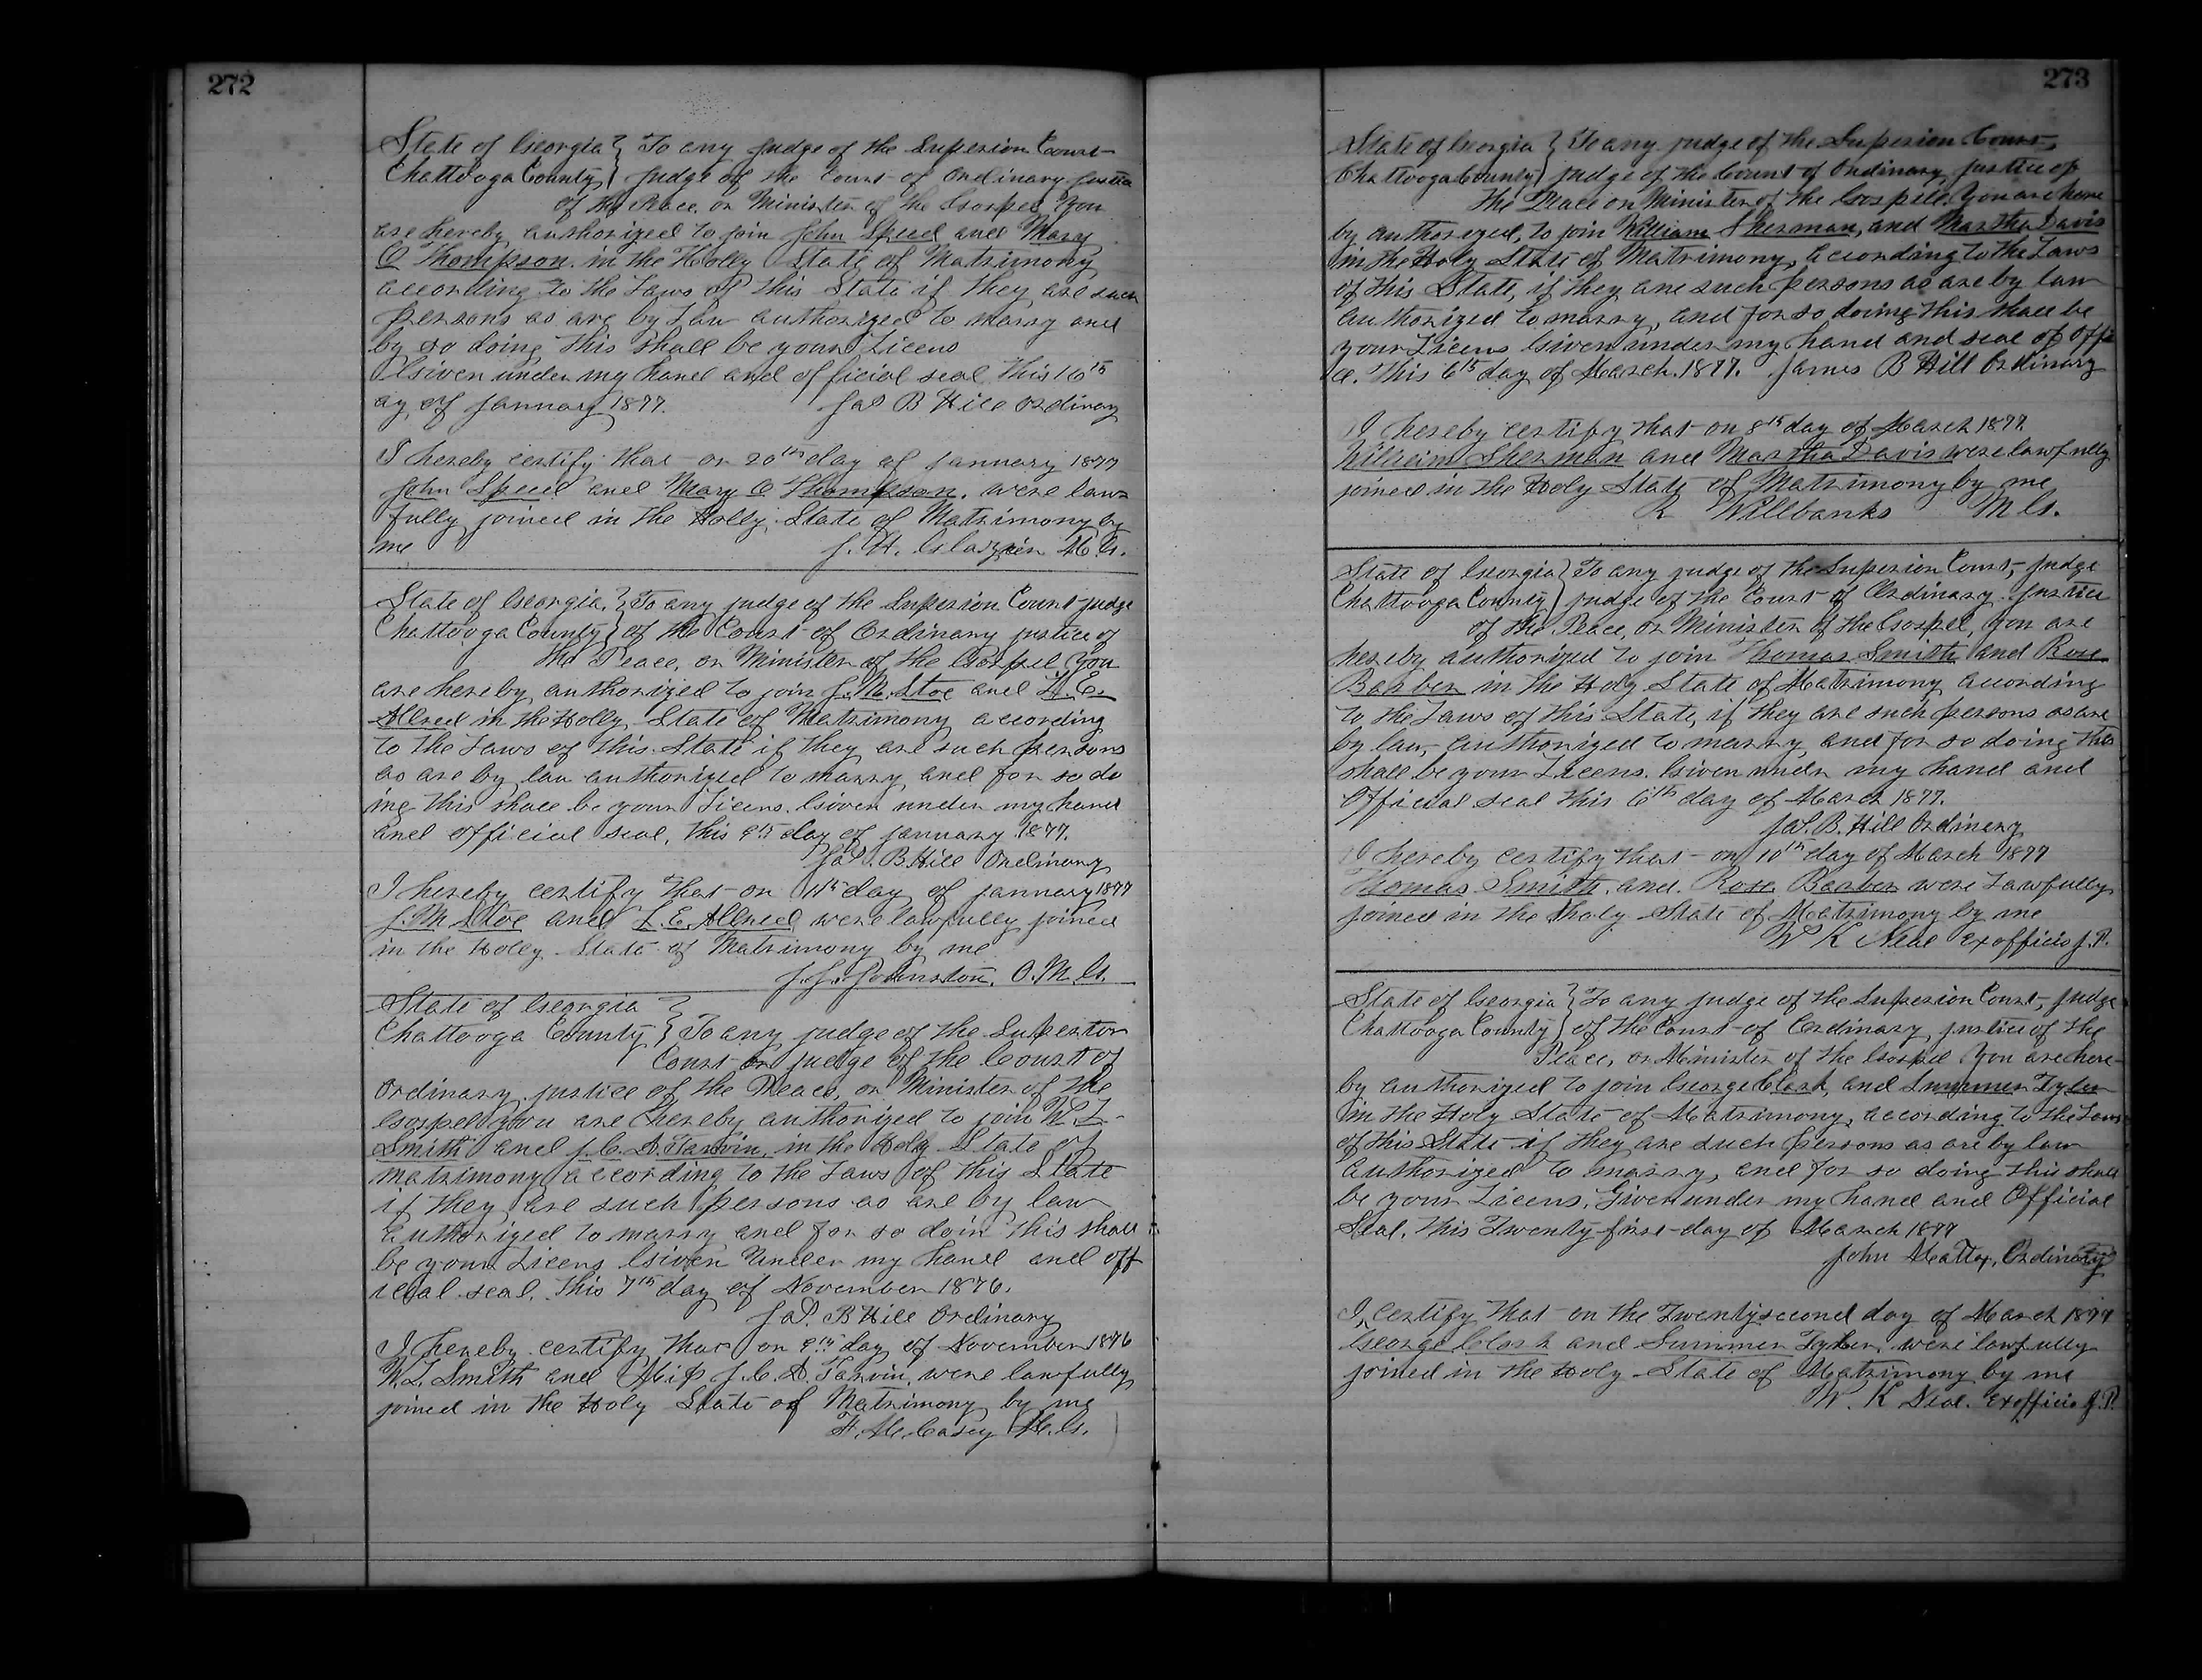 272
State of Georgia } To any judge of the Superior Court
Chattooga County } judge of the Court of Ordinary justice
of the Peace, or Minister of the Gospel You
are hereby authorized to join John Speed and Mary
C Thompson in the Holy State of Matrimony
according to the Laws of this State if they are such
persons as are by Law authorized to marry and
by so doing this shall be your Licens
Given under my hand and official seal This 16th
ay of January 1877. Jas B Hill Ordinary
I hereby certify that on 20th day of January 1877
John Speed and Mary C Thompson, were law
fully joined in the Holy State of Matrimony by
me J. H. M. G.
State of Georgia, } To any judge of the Superior Court judge
Chattooga County } of the Court of Ordinary justice of
the Peace, or Minister of the Gospel You
are hereby authorized to join J. M. Stoe and L. E.
Allred in the Holly State of Matrimony according
to the Laws of this State if they are such persons
as are by law authorized to marry and for so do
ing this shall be your Licens. Given under my hand
and official seal, this 9th day of January 1877.
Jas. B. Hill Ordinary
I hereby certify that on 11th day of January 1877
J. M Stoe and L. E. Allred, were lawfully joined
in the Holly State of Matrimony by me
J. J. Johnston, O. M. G.
State of Georgia }
Chattooga County } To any judge of the Superior
Court or judge of the Court of
Ordinary justice of the Peace, or Minister of the
Gospel you are hereby authorized to join W L
Smith and J. C. D. Tarvin, in the Holy State of
matrimony according to the Laws of this State
if they are such persons as are by law
authorized to marry and for so doin this shall
be your Licens Given Under my hand and off
icial seal. This 7th day of November 1876.
Jas. B Hill Ordinary
I hereby certify that on 9th day of November 1876
W. L. Smith and Miss J. C. D. Tarvin, were lawfully
joined in the Holy State of Matrimony by me
F. Mc. Casey M. G.
273
State of Georgia } To any judge of the Superior Court,
Chattooga County } judge of the Court of Ordinary justice of
the Peace or Minister of the Gospel. You are here
by authorized, to join William Sherman, and Martha Davis
in the Holy State of Matrimony, according to the Laws
of this State, if they are such persons as are by law
authorized to marry, and for so doing this shall be
your Licens Given under my hand and seal of offi
ce. This 6th day of March. 1877. James B Hill Ordinary
I hereby certify that on 8th day of March 1877
William Sherman and Martha Davis were lawfully
joined in the Holy State of Matrimony by me
R Willbanks M G.
State of Georgia } To any judge of the Superior Court, Judge
Chattooga County } judge of the Court of Ordinary. Justice
of the Peace, or Minister of the Gospel, you are
hereby authorized to join Thomas Smith and Rose
Barber in the Holy State of Matrimony according
to the Laws of this State, if they are such persons as are
by law, authorized to marry, and for so doing this
shall be your Licens. Given undr my hand and
Official seal this 6th day of March 1877.
Jas. B. Hill Ordinary
I hereby certify that on 10th day of March 1877
Thomas Smith, and Rose Barber were Lawfully
joined in the Holy State of Matrimony by me
W K Neal Exofficio J. P.
State of Georgia } To any judge of the Superior Court, judge
Chattooga County } of the Court of Ordinary, justice of the
Peace, or Minister of the Gospel You are here
by authorized to join George Clark, and Summer Tyler
in the Holy State of Matrimony, according to the Laws
of this State if they are such persons as are by law
authorized to marry, and for so doing this shall
be your Licens. Given under my hand and Official
Seal, this Twenty first day of March 1877
John Mattox, Ordinary
I, certify that on the Twenty second day of March 1877
George Clark and Summer Tyler, were lawfully
joined in the Holy State of Matrimony by me
W. K Neal. Exofficio J. P.